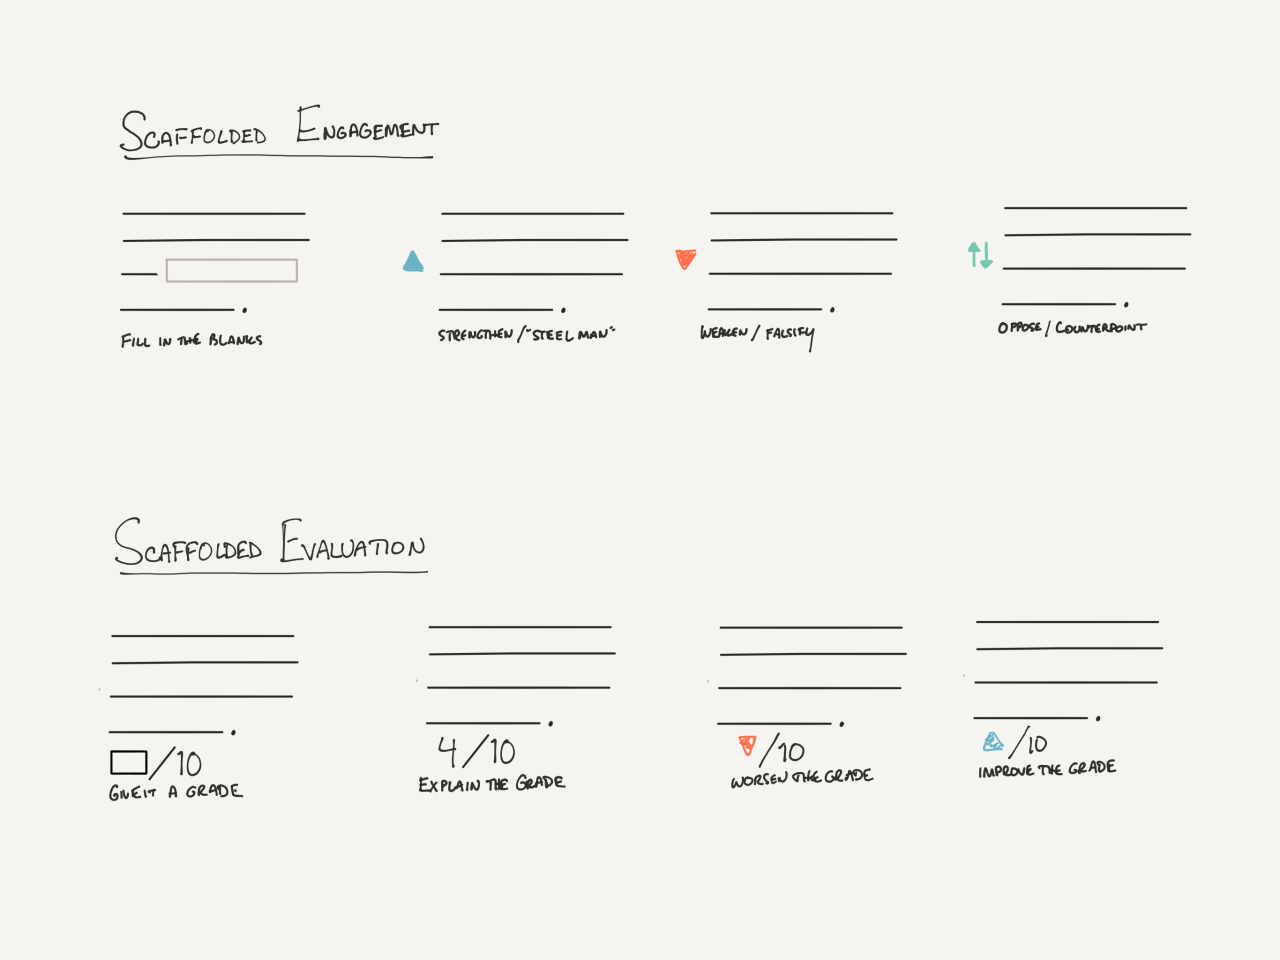 SCAFFOLDED ENGAGEMENT
FILL IN THE BLANKS
STRENGTHEN / "STEEL MAN"
WEAKEN / FALSIFY
OPPOSE / COUNTERPOINT
SCAFFOLDED EVALUATION
/10
GIVE IT A GRADE
4/10
EXPLAIN THE GRADE
/10
WORSEN THE GRADE
/10
IMPROVE THE GRADE